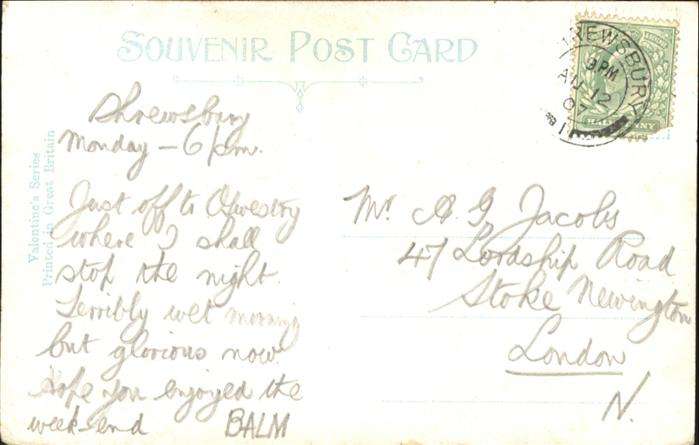 SOUVENIR POST CARD
SHREWSBURY
9 PM
AU 12
07
HALFPENNY
Valentine's Series
Printed in Great Britain
Shrewsbury
Monday – 6 pm.
Just off to Oswestry
where I shall
stop the night.
Terribly wet morning
but glorious now.
Hope you enjoyed the
week-end BALM
Mr. A. G. Jacobs
47 Lordship Road
Stoke Newington
London
N.